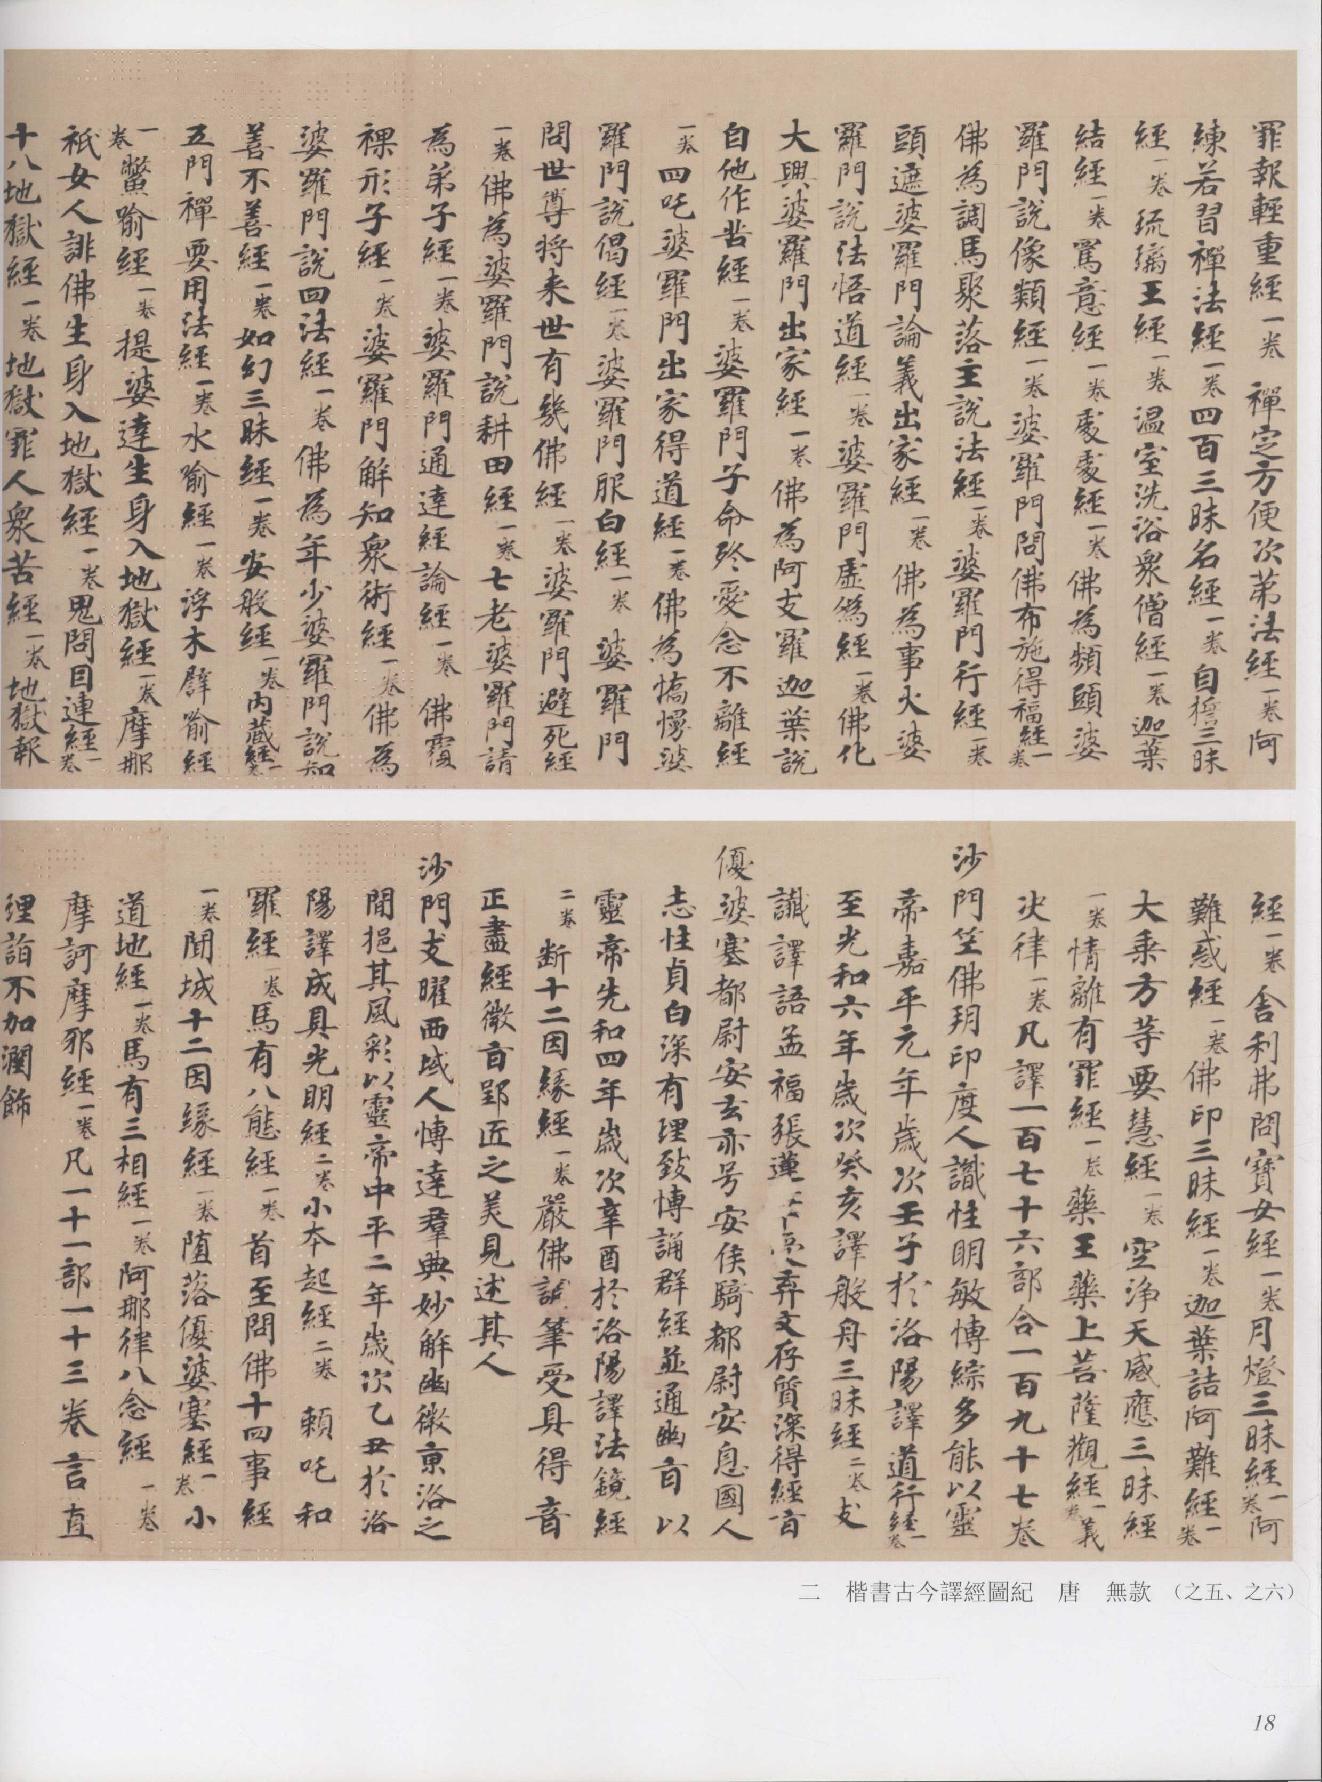 罪報輕重經一卷 禪定方便次第法經一卷阿
練若習禪法經一卷四百三昧名經一卷自誓三昧
經一卷琉璃王經一卷溫室洗浴衆僧經一卷迦葉
結經一卷罵意經一卷處處經一卷佛為頻頭婆
羅門說像類經一卷婆羅門問佛布施得福經一卷
佛為調馬聚落主說法經一卷婆羅門行經一卷
頭遮婆羅門論義出家經一卷佛為事火婆
羅門說法悟道經一卷婆羅門虛僞經一卷佛化
大興婆羅門出家經一卷佛為阿支羅迦葉說
自他作苦經一卷婆羅門子命終愛念不離經
一卷四吒婆羅門出家得道經一卷佛為憍慢婆
羅門說偈經一卷婆羅門服白經一卷婆羅門
問世尊将来世有幾佛經一卷婆羅門避死經
一卷佛為婆羅門說耕田經一卷七老婆羅門請
為弟子經一卷婆羅門通達經論經一卷佛覆
裸形子經一卷婆羅門解知衆術經一卷佛為
婆羅門說四法經一卷佛為年少婆羅門說知
善不善經一卷如幻三昧經一卷安般經一卷內藏經一卷
五門禪要用法經一卷水喻經一卷浮木譬喻經
一卷鱉喻經一卷提婆達生身入地獄經一卷摩那
祇女人誹佛生身入地獄經一卷鬼問目連經一卷
十八地獄經一卷地獄罪人衆苦經一卷地獄報
經一卷舍利弗問寶女經一卷月燈三昧經一卷阿
難惑經一卷佛印三昧經一卷迦葉詰阿難經一卷
大乘方等要慧經一卷空淨天感應三昧經
一卷情離有罪經一卷藥王藥上菩薩觀經一卷義
决律一卷凡譯一百七十六部合一百九十七卷
沙門竺佛朔印度人識性明敏博綜多能以靈
帝嘉平元年歲次壬子於洛陽譯道行經一卷
至光和六年歲次癸亥譯般舟三昧經二卷支
讖譯語孟福張蓮筆受弃文存質深得經旨
優婆塞都尉安玄亦号安侯騎都尉安息國人
志性貞白深有理致博誦群經並通幽旨以
靈帝光和四年歲次辛酉於洛陽譯法鏡經
二卷断十二因緣經一卷嚴佛調筆受具得音
正盡經微旨郢匠之美見述其人
沙門支曜西域人博達羣典妙解幽微東洛之
閒挹其風彩以靈帝中平二年歲次乙丑於洛
陽譯成具光明經二卷小本起經二卷賴吒和
羅經一卷馬有八態經一卷首至問佛十四事經
一卷聞城十二因缘經一卷堕落優婆塞經一卷小
道地經一卷馬有三相經一卷阿那律八念經一卷
摩訶摩邪經一卷凡一十一部一十三卷言直
理詣不加潤飾
二 楷書古今譯經圖紀 唐 無款 （之五、之六）
18